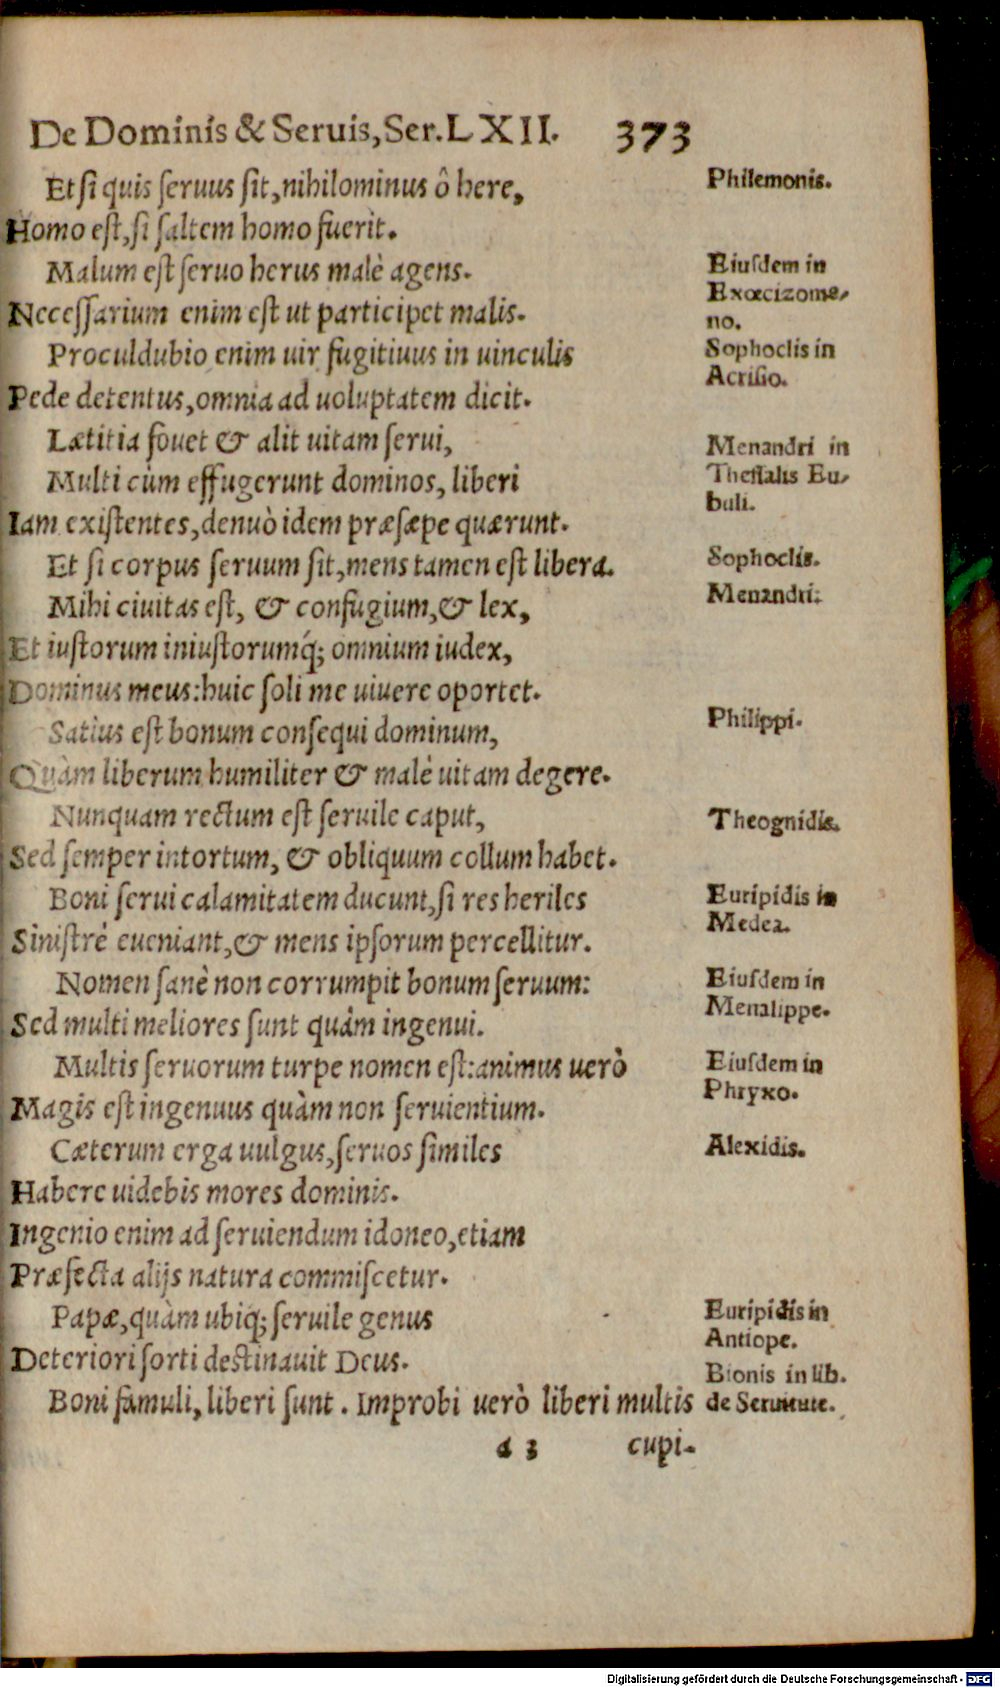 De Dominis & Seruis, Ser. LXII. 373
Et si quis seruus sit, nihilominus ô here,
Philemonis.
Homo est, si saltem homo fuerit.
Malum est seruo herus malè agens.
Eiusdem in
Exœcizome-
no.
Necessarium enim est ut participet malis.
Proculdubio enim uir fugitiuus in uinculis
Sophoclis in
Acrisio.
Pede detentus, omnia ad uoluptatem dicit.
Lætitia fouet & alit uitam serui,
Menandri in
Thessalis Eu-
buli.
Multi cùm effugerunt dominos, liberi
Iam existentes, denuò idem præsæpe quærunt.
Et si corpus seruum sit, mens tamen est libera.
Sophoclis.
Mihi ciuitas est, & confugium, & lex,
Menandri.
Et iustorum iniustorumq́; omnium iudex,
Dominus meus: huic soli me uiuere oportet.
Satius est bonum consequi dominum,
Philippi.
Quàm liberum humiliter & malè uitam degere.
Nunquam rectum est seruile caput,
Theognidis.
Sed semper intortum, & obliquum collum habet.
Boni serui calamitatem ducunt, si res heriles
Euripidis in
Medea.
Sinistrè eueniant, & mens ipsorum percellitur.
Nomen sanè non corrumpit bonum seruum:
Eiusdem in
Menalippe.
Sed multi meliores sunt quàm ingenui.
Multis seruorum turpe nomen est: animus uerò
Eiusdem in
Phryxo.
Magis est ingenuus quàm non seruientium.
Cæterum erga uulgus, seruos similes
Alexidis.
Habere uidebis mores dominis.
Ingenio enim ad seruiendum idoneo, etiam
Præfecta alijs natura commiscetur.
Papæ, quàm ubiq; seruile genus
Euripidis in
Antiope.
Deteriori sorti destinauit Deus.
Boni famuli, liberi sunt. Improbi uerò liberi multis
Bionis in lib.
de Seruitute.
a 3 cupi-
Digitalisierung gefördert durch die Deutsche Forschungsgemeinschaft - DFG